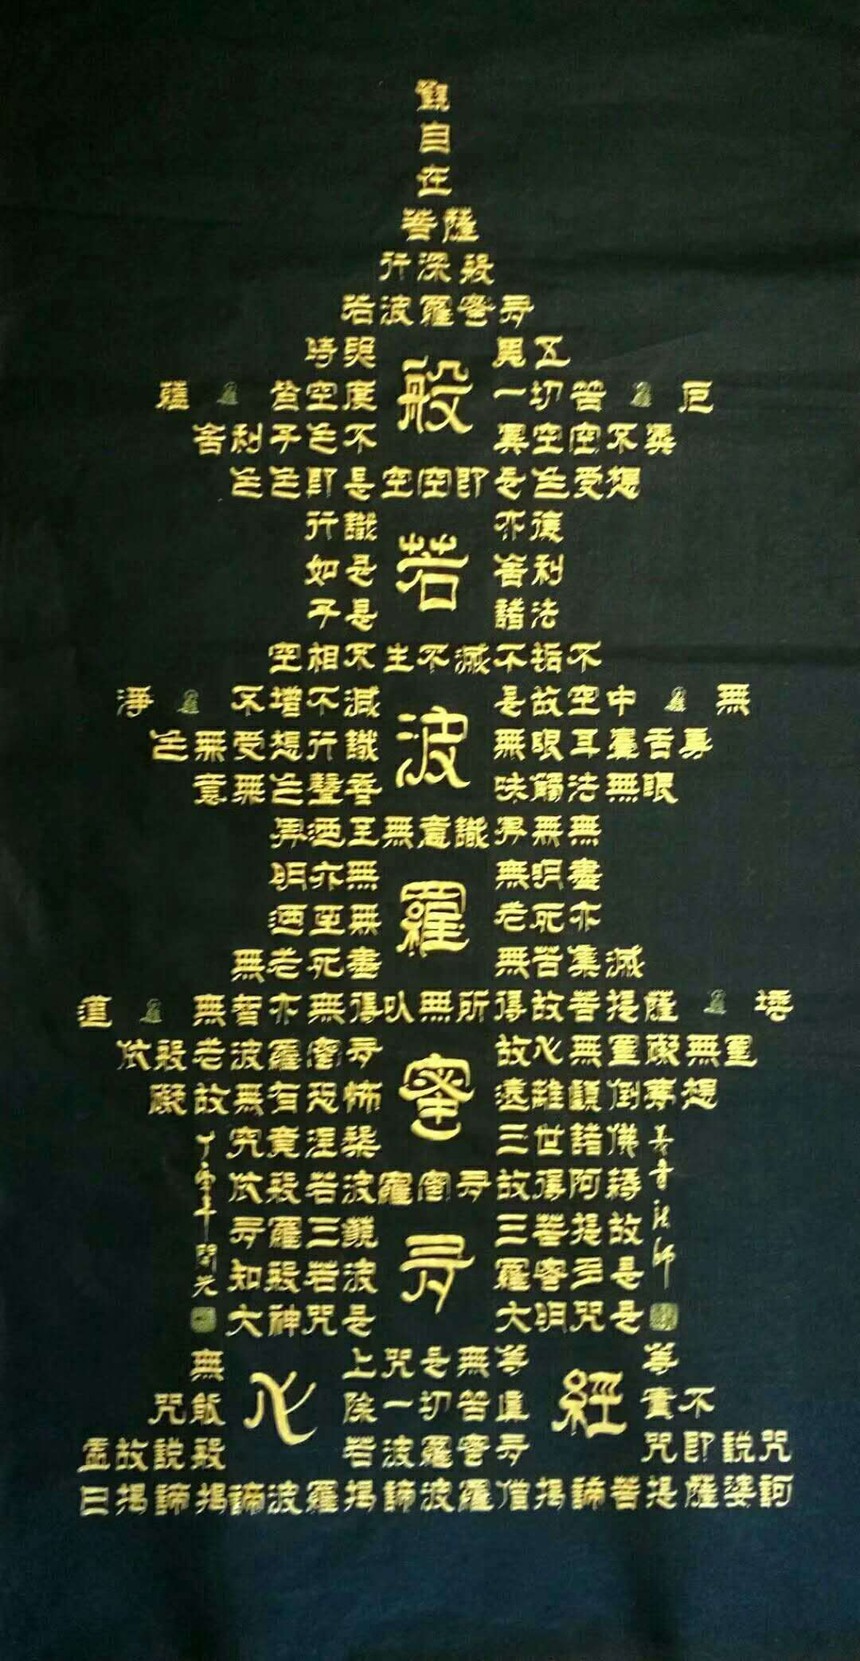 觀
自
在
菩薩
行深般
若波羅蜜多
時照見五
蘊皆空度一切苦厄
舍利子色不異空空不異
色色即是空空即是色受想
行識亦復
如是舍利
子是諸法
空相不生不滅不垢不
淨不增不減是故空中無
色無受想行識無眼耳鼻舌身
意無色聲香味觸法無眼
界迺至無意識界無無
明亦無無明盡
迺至無老死亦
無老死盡無苦集滅
道無智亦無得以無所得故菩提薩埵
依般若波羅蜜多故心無罣礙無罣
礙故無有恐怖遠離顛倒夢想
究竟涅槃三世諸佛
依般若波羅蜜多故得阿耨
多羅三藐三菩提故
知般若波羅蜜多是
大神咒是大明咒是
無上咒是無等等
咒能除一切苦真實不
虛故說般若波羅蜜多咒即說咒
曰揭諦揭諦波羅揭諦波羅僧揭諦菩提薩婆訶
般若波羅蜜多心經